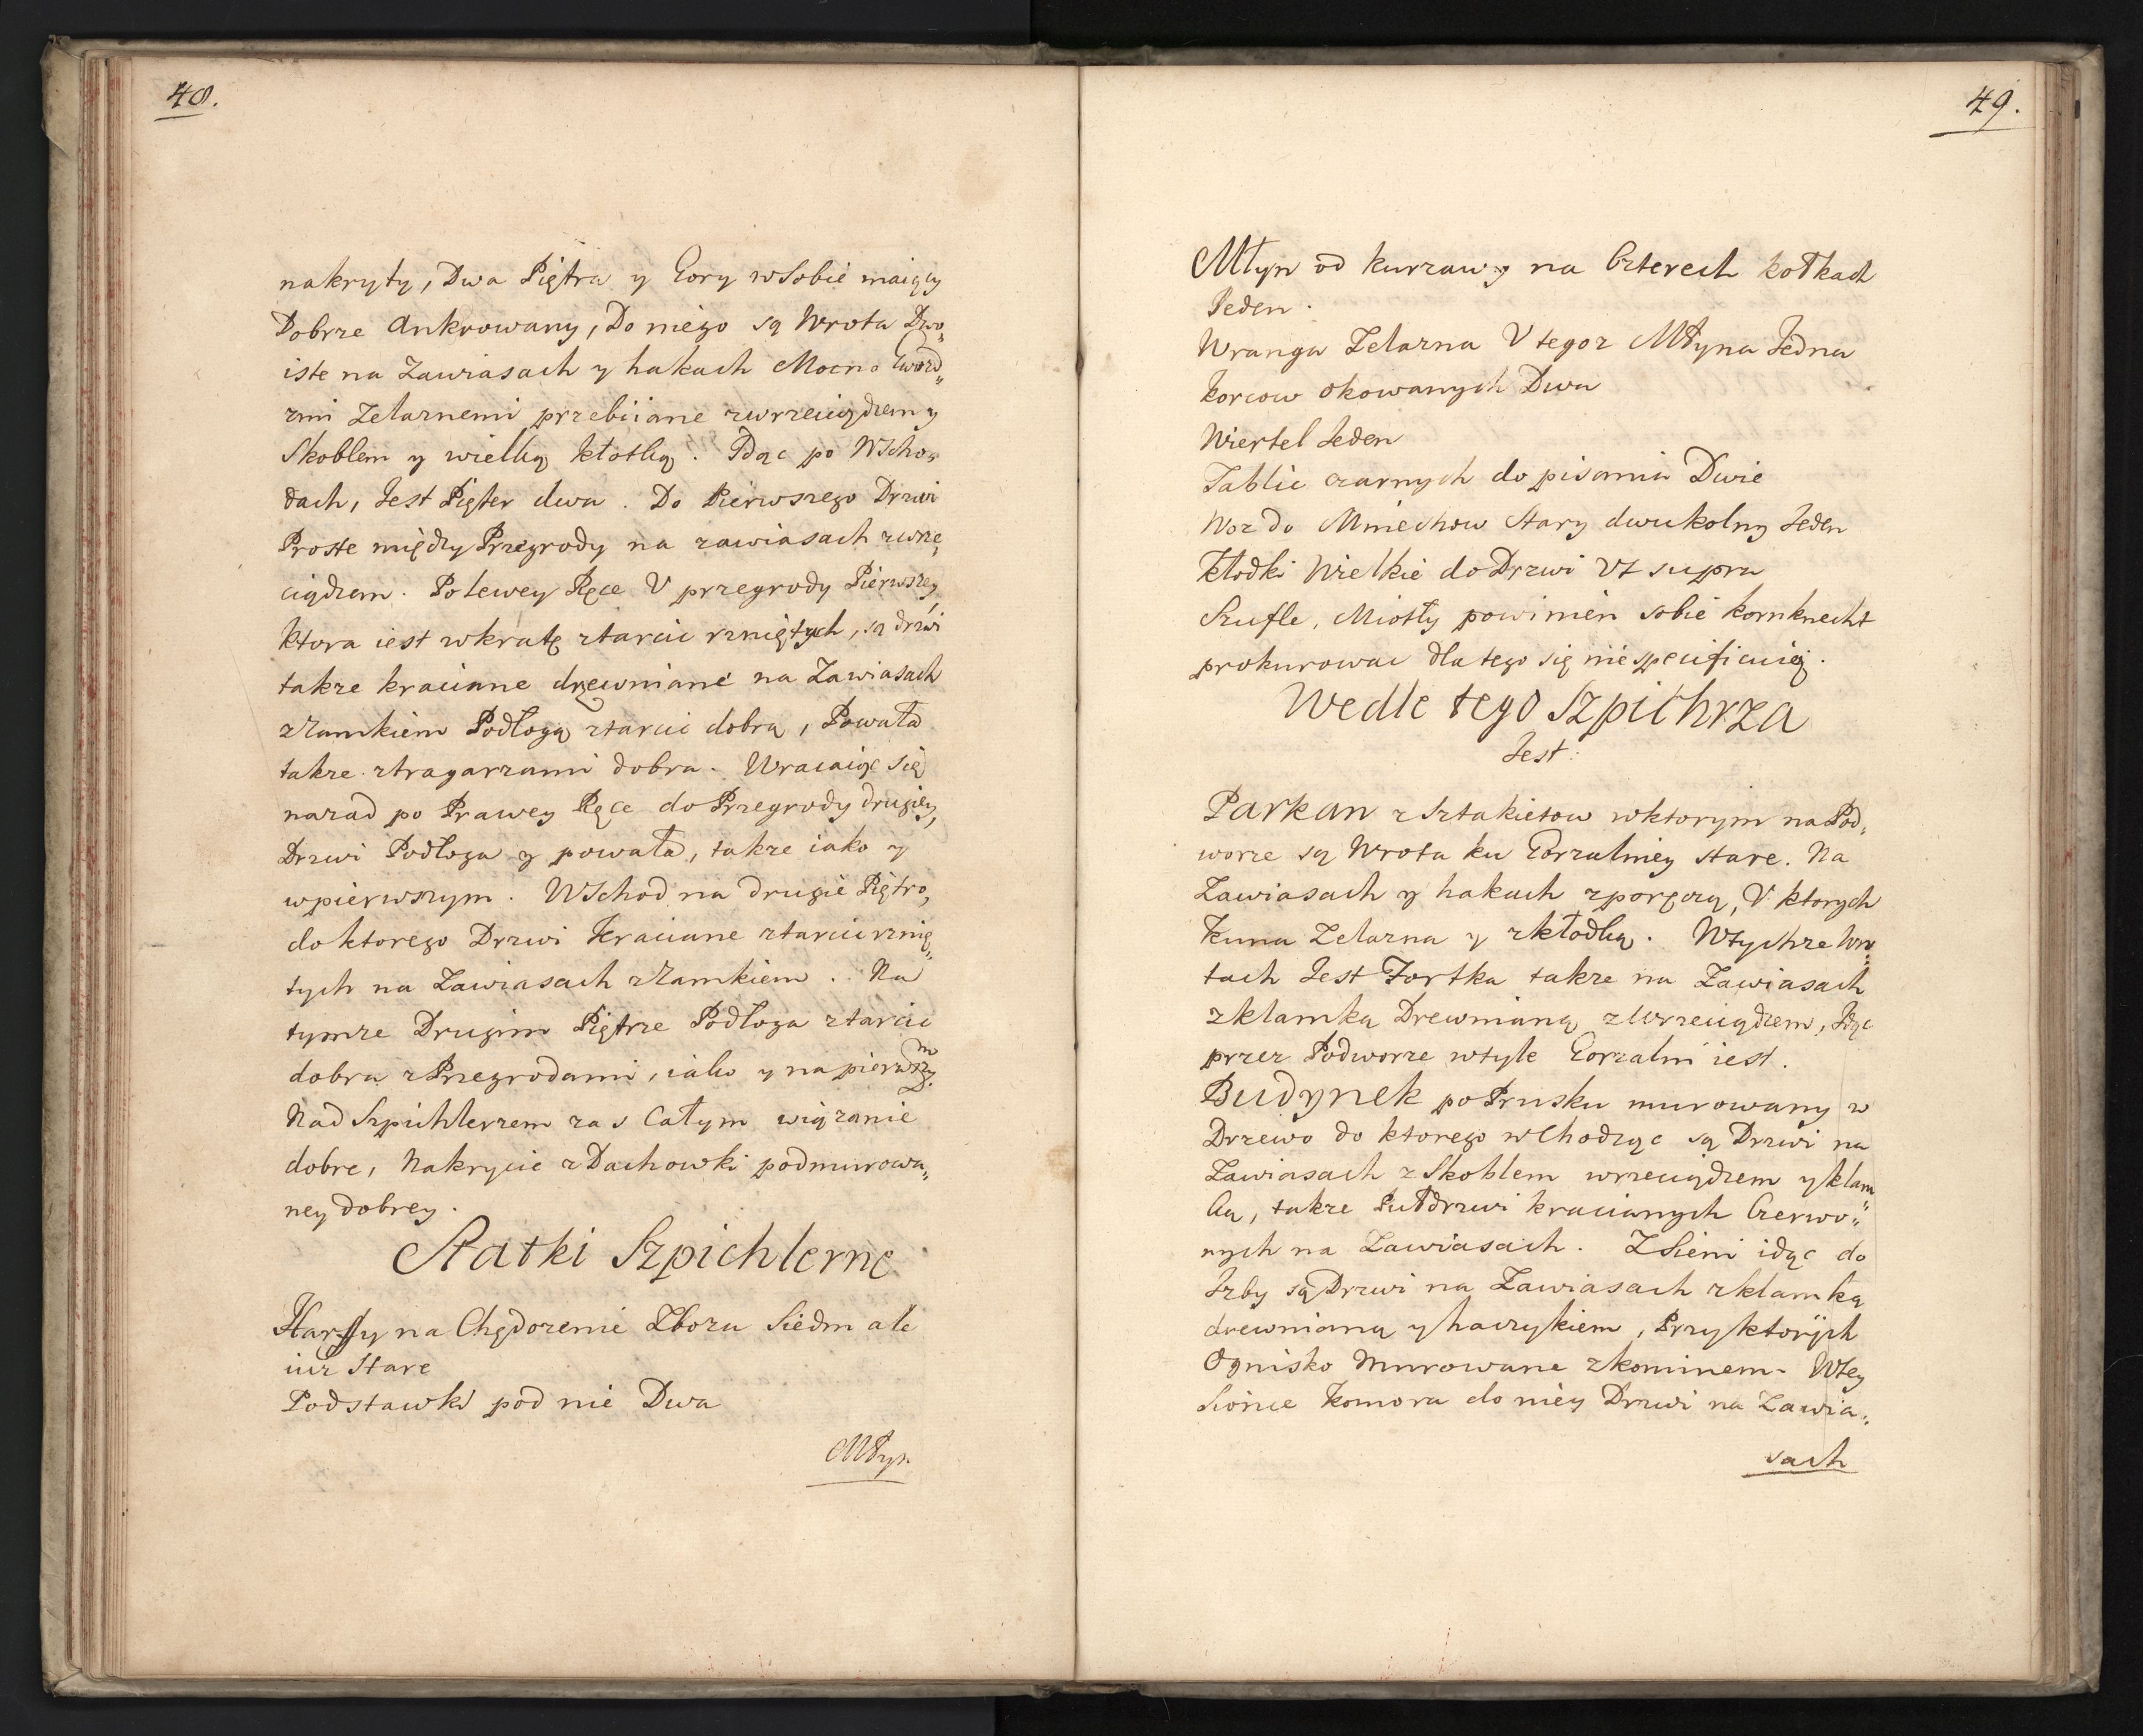 48.
nakryty, Dwa Piętra y Gory wSobie maiący
Dobrze Ankrowany, Do niego są Wrota Dwo„
iste na Zawiasach y hakach Mocno Gwozd„
zmi Zelaznemi przebiiane zwrzeciądzem y
Skoblem y wielką kłotką. Idąc po Wscho„
dach, Jest Pięter dwa. Do Pierwszego Drzwi
Proste między Przegrody na zawiasach zwrze„
ciądzem. Po lewey Ręce V przegrody Pierwszey
ktora iest wkratę ztarcic rzniętych, są drzwi
takze kraciane drzewniane na Zawiasach
zZamkiem Podłogą ztarcic dobrą, Powała
takze ztragarzami dobra. Wracaiąc się
nazad po Prawey Ręce do Przegrody drugiey,
Drzwi Podłoga y powała, takze iako y
wpierwszym. WSchod na drugie Piętro,
do ktorego Drzwi Kraciane ztarcic rznię„
tych na Zawiasach zZamkiem. Na
tymze Drugim Piętrze Podłoga ztarcic
dobra zPrzegrodami, iako y na pierwszym.
Nad Szpichlerzem zas Całym wiązanie
dobre, Nakrycie zDachowki podmurowa„
ney dobrey.
Statki Szpichlerne
Harffy na Chędozenie Zboza Siedm ale
iuz Stare
Podstawki pod nie Dwa
Młyn
49.
Młyn od kurzawy na Czterech kołkach
Jeden.
Wranga Zelazna V tegoz Młyna Jedna
Korcow okowanych Dwa
Wiertel Jeden
Tablic czarnych do pisania Dwie
Woz do Miechow Stary dwukolny Jeden
Kłodki Wielkie do Drzwi Vt supra
Szufle, Miotły powinien sobie kornknecht
prokurowac dla tego się nie specificuią.
Wedle tego Szpichrza
Jest:
Parkan zSztakietow wktorym na Pod„
worze są Wrota ku Gorzalniey stare. Na
Zawiasach y hakach zporęczą, V ktorych
Kuna Zelazna y zkłodką. Wtychze Wro„
tach Jest Fortka takze na Zawiasach
zklamką Drewnianą zWrzeciądzem, Idąc
przez Podworze wtyle Gorzalni iest.
Budynek po Prusku murowany w
Drzewo do ktorego wChodząc są Drzwi na
Zawiasach zSkoblem wrzeciądzem y klam
ką, takze Pułdrzwi kracianych Czerwo„
nych na Zawiasach. ZSieni idąc do
Jzby są Drzwi na Zawiasach zklamką
drewnianą y haczykiem, Przy ktorych
Ognisko Murowane zkominem. Wtey
Sionce Komora do niey Drzwi na Zawia„
sach